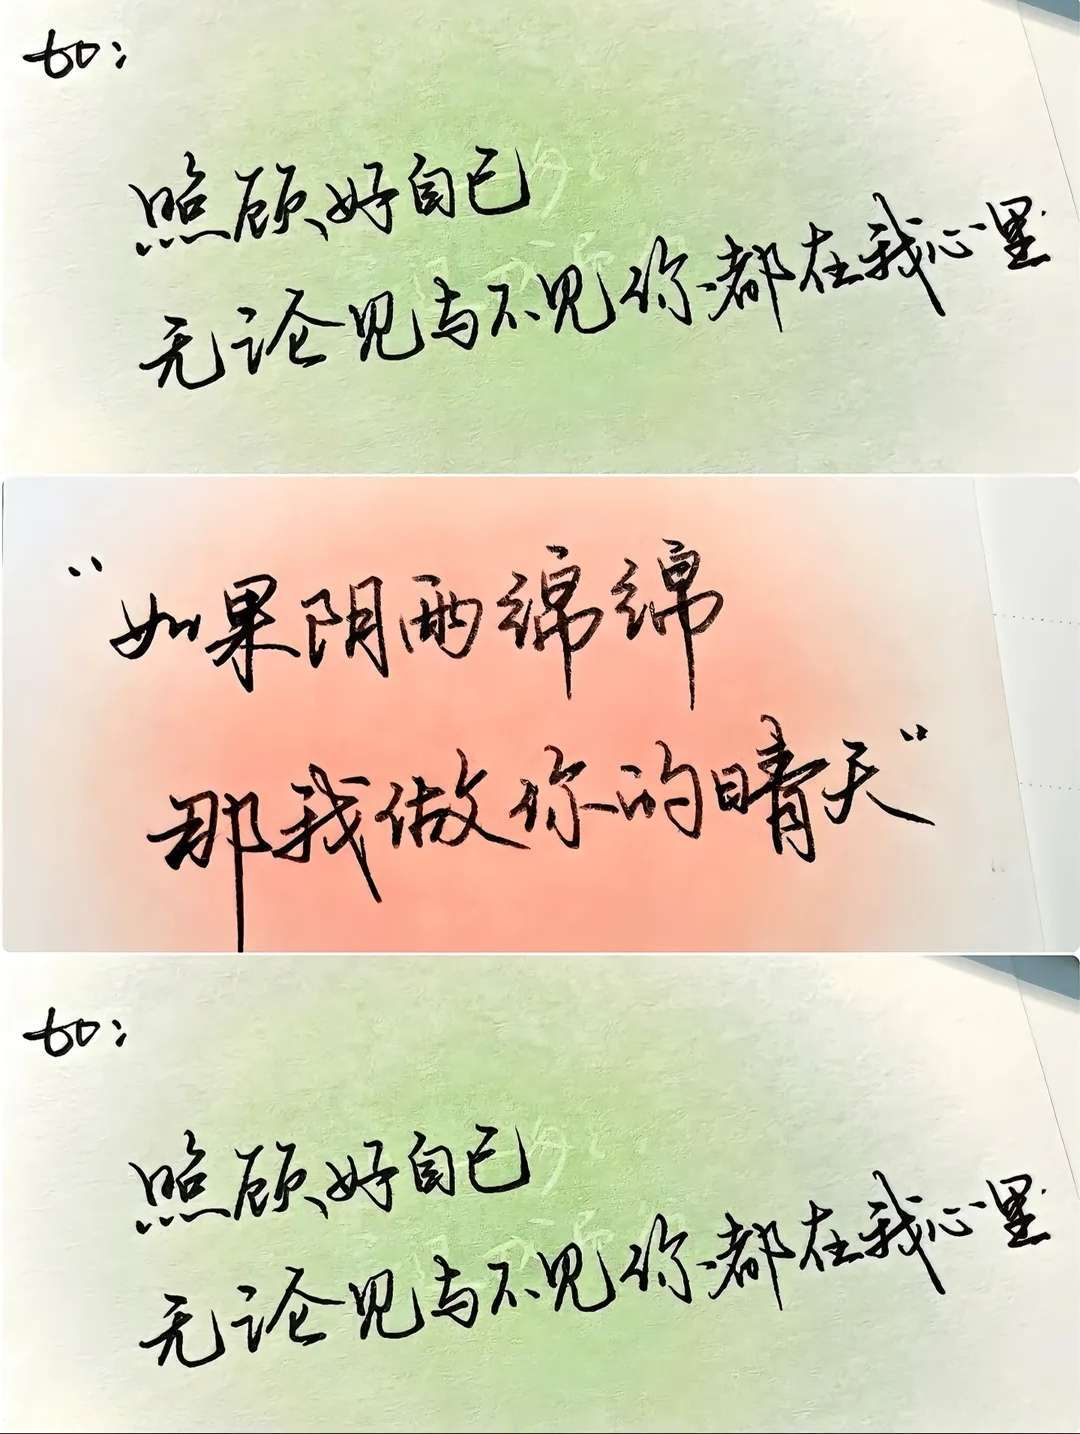 to:
照顾好自己
无论见与不见你都在我心里
“如果阴雨绵绵
那我做你的晴天”
to:
照顾好自己
无论见与不见你都在我心里